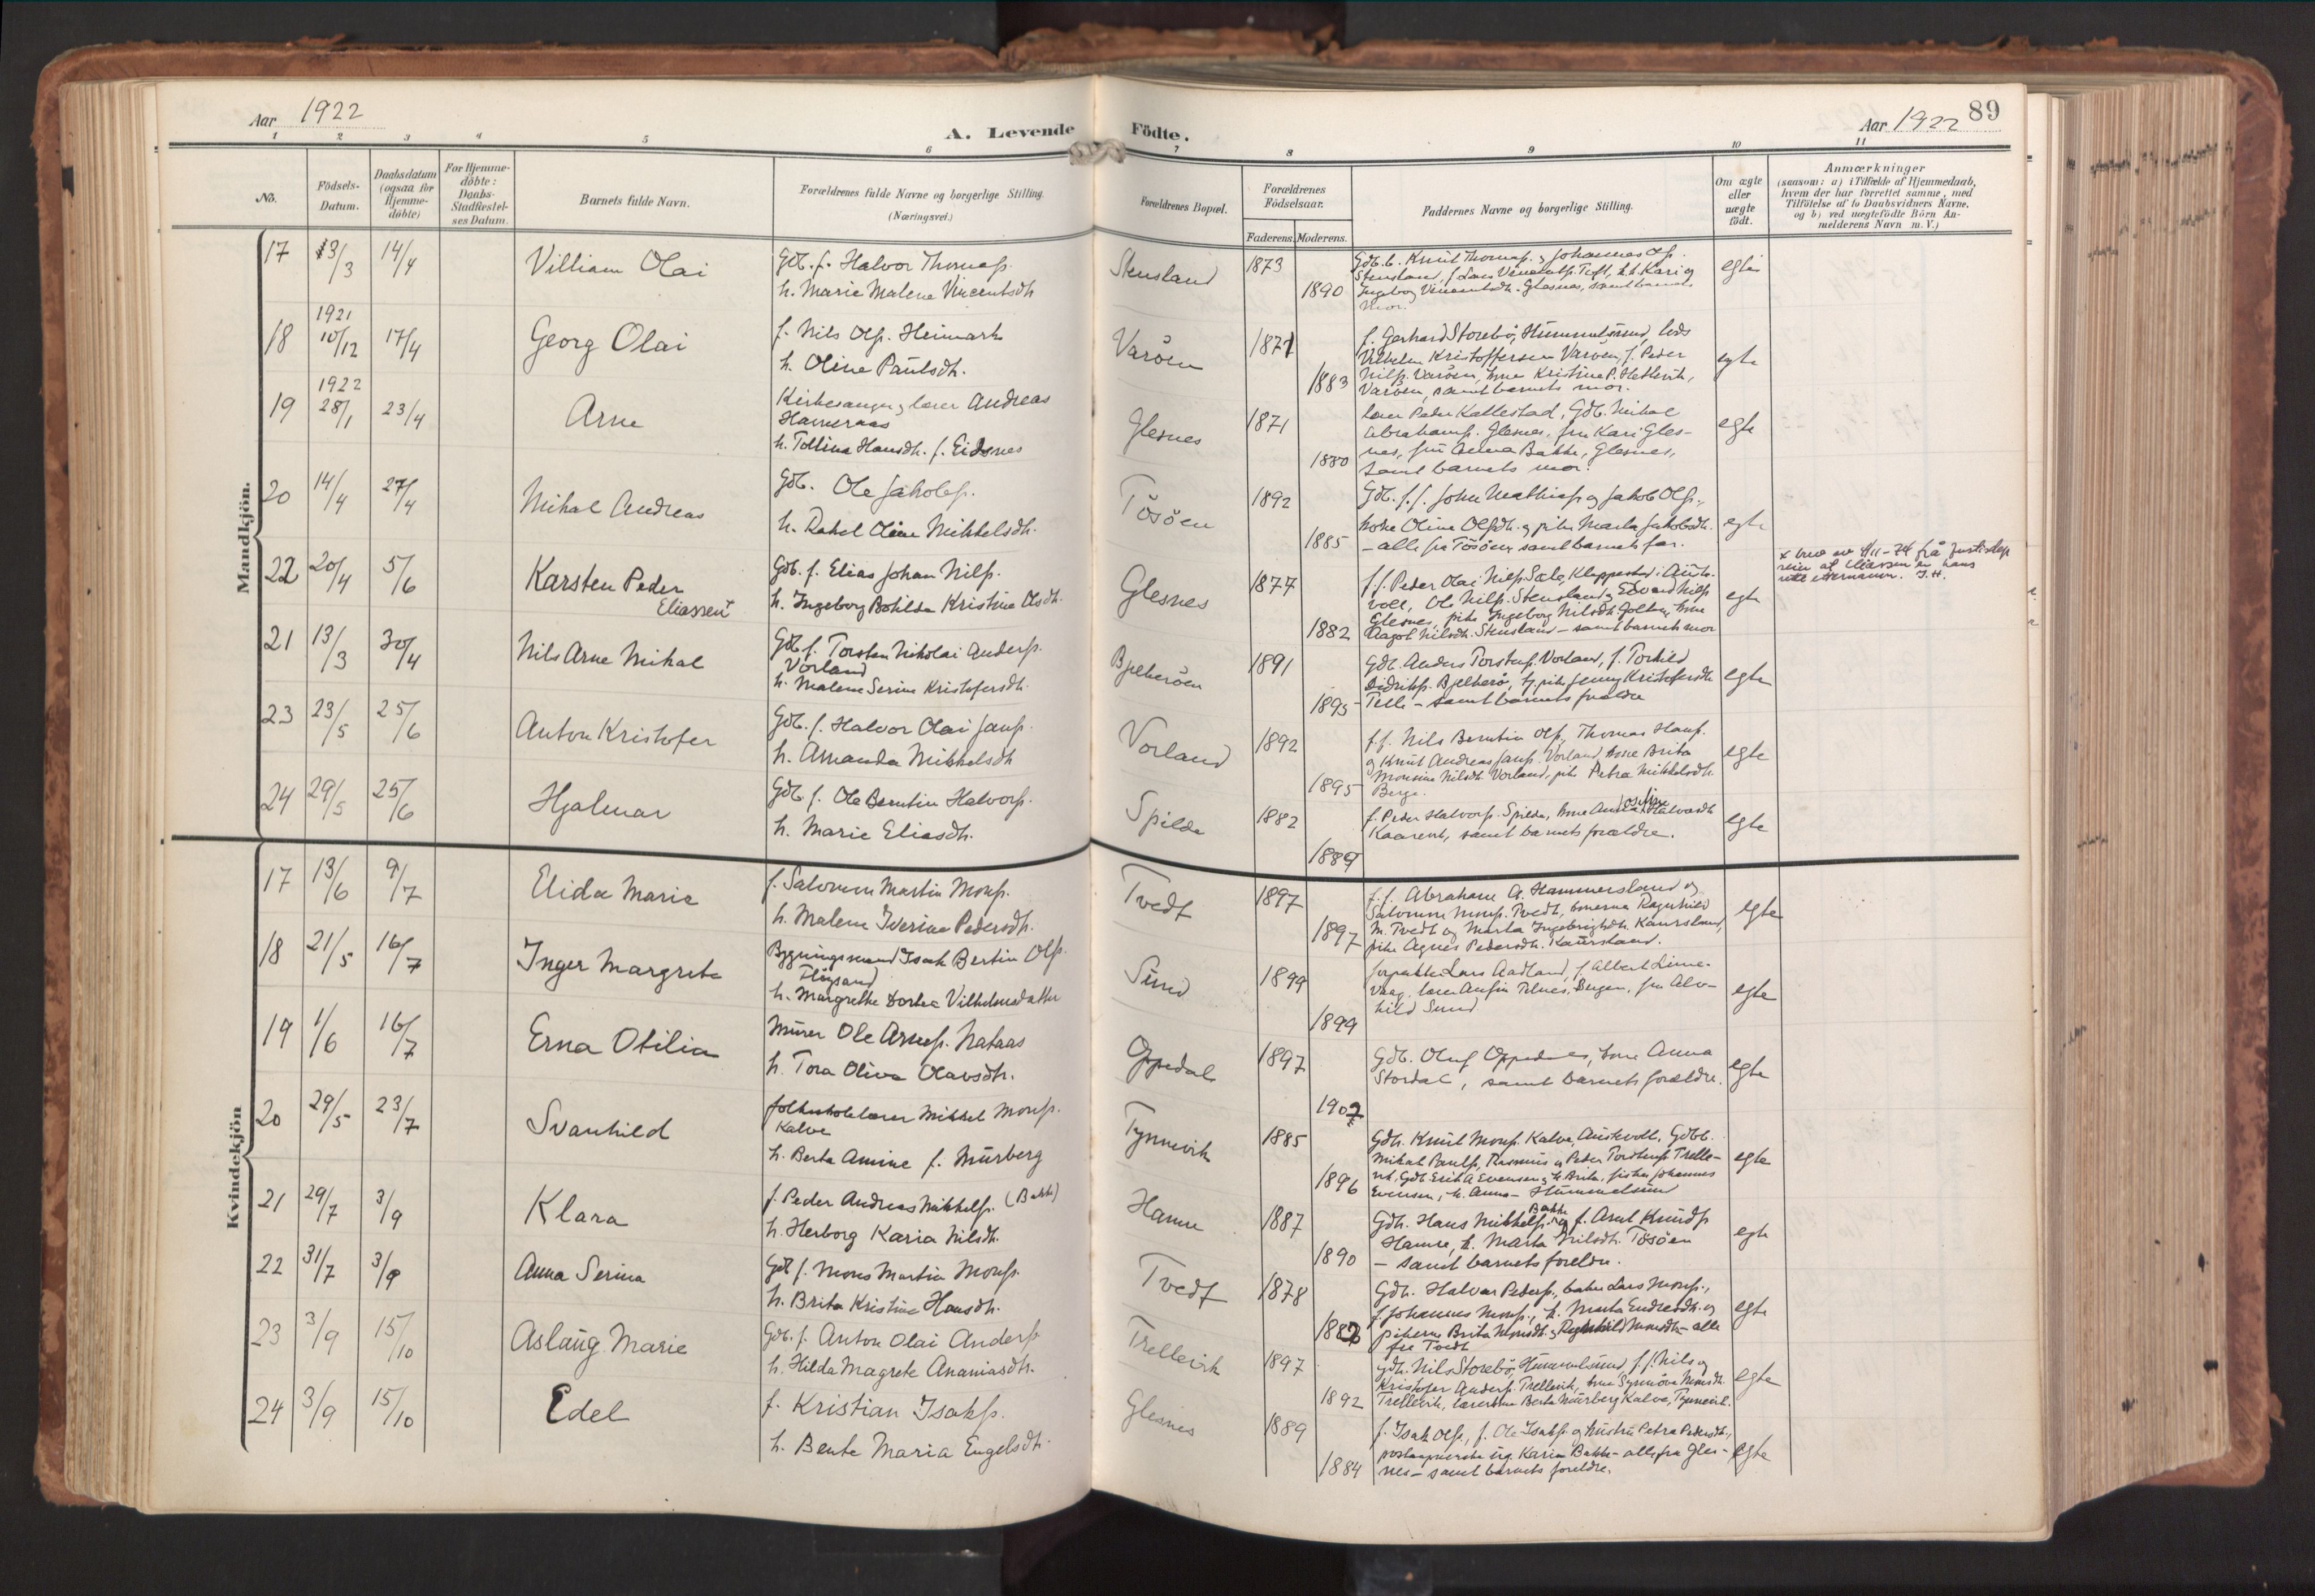 Aar 1922
A. Levende Födte.
Aar 1922 89
1 2 3 4 5 6 7 8 9 10 11
No.
Födsels-Datum.
Daabsdatum (ogsaa for Hjemme-döbte)
For Hjemme-döbte: Daabs-Stadfæstel-ses Datum.
Barnets fulde Navn.
Forældrenes fulde Navne og borgerlige Stilling. (Næringsvei.)
Forældrenes Bopæl.
Forældrenes Födselsaar.
Faderens. Moderens.
Faddernes Navne og borgerlige Stilling.
Om ægte eller uægte födt.
Anmærkninger
(saasom: a) i Tilfælde af Hjemmedaab, hvem der har forrettet samme, med Tilföielse af to Daabsvidners Navne, og b) ved uægtefödte Börn An-melderens Navn m. V.)
Mandkjön.
17 13/3 14/4 Villiam Olai
Gdb. f. Halvor Thomass.
h. Marie Malene Vincentsdh
Stensland 1873 1890
egte
18 1921 10/12 17/4 Georg Olai
f. Nils Ols. Heimark
h. Oline Paulsdh.
Varöen 1871 1883
f. Gerhard Storebö, Hummelsund, lods
Vilhelm Kristoffersen Varöen, f. Peder
Nilss. Varöen, kone Kristine P. Hetlevik,
Varöen, samt barnets mor.
egte
19 1922 28/1 23/4 Arne
Kirkesanger og lærer Andreas
Hameraas
h. Tolline Hansdh. f. Eidsnes
Glesnes 1871 1880
lærer Peder Kallestad, Gdb. Mikal
Abrahams. Glesnes, fru Kari Gles-
nes, fru Anna Bakke, Glesnes,
samt barnets mor.
egte
20 14/4 27/4 Mikal Andreas
Gdb. Ole Jakobs.
h. Rakel Oline Mikkelsdh.
Tösöen 1892 1885
Gdb. f.f. John Mathias. og Jakob Ols.,
kone Oline Olsdh. og pike Marta Jakobsdh.
– alle fra Tösöen samt barnets far.
egte
22 20/4 5/6 Karsten Peder
Eliassen x
Gdb. f. Elias Johan Nilss.
h. Ingeborg Botilda Kristine Olsdh.
Glesnes 1877 1882
f.f. Peder Olai Nilss. Sale, Kleppestad i Aust-
voll, Ole Nilss. Stensland og Edvard Nilss
Glesnes, pike Ingeborg Nilsdh. Golten, kone
Aagot Nilsdh. Stensland – samt barnets mor
egte
x brev av 4/11-74 frå
21 13/3 30/4 Nils Arne Mikal
Gdb. f. Torsten Nikolai Anders.
Vorland
h. Malene Serine Kristofersdh.
Bjelkeröen 1891 1895
Gdb. Anders Torstens. Vorland, f. Torkild
Didriks. Bjelkerö, tj. pike Jenny Kristofersdh
Telle – samt barnets foreldre
egte
23 23/5 25/6 Anton Kristofer
Gdb. f. Halvor Olai Jans.
h. Amanda Mikkelsdh
Vorland 1892 1895
f.f. Nils Berntin Ols., Thomas Hans.
og Knut Andreas Jans. Vorland, kone Brita
Monsine Nilsdh. Vorland, pike Petra Mikkelsdh.
Berge.
egte
24 29/5 25/6 Hjalmar
Gdb. f. Ole Berntin Halvors.
h. Marie Eliasdh.
Spilde 1882 1889
f. Peder Halvors. Spilde, kone Anna Josefine Halvorsdh
Kaarevik, samt barnets forældre.
egte
Kvindekjön
17 13/6 9/7 Elida Marie
f. Salomon Martin Mons.
h. Malene Iverine Pedersdh.
Tvedt 1897 1897
f.f. Abraham A. Hammersland og
Salomon Mons. Tvedt, konerne Ragnhild
M. Tvedt og Marta Ingebrigtsdh. Kausland,
pike Agnes Pedersdh. Kausland.
egte
18 21/5 16/7 Inger Margrete
Bygningsmand Isak Bertin Ols.
Flögsand
h. Margrethe Dortea Vilhelmsdatter
Sund 1899 1899
forpakter Lars Aadland, f. Albert Lime-
vaag, lærer Anfin Telnes, Bergen, fru Alv-
hild Sund
egte
19 1/6 16/7 Erna Otilia
Murer Ole Arnes. Nataas
h. Tora Oliva Olavsdh.
Oppedal 1897 1902
Gdb. Oluf Oppedal, kone Anna
Stordal, samt barnets forældre.
egte
20 29/5 23/7 Svanhild
folkeskolelærer Mikkel Mons.
Kalve
h. Berta Amine f. Murberg
Tynnevik 1885 1896
Gdb. Knut Mons. Kalve, Austevoll, Gdbb.
Mikal Pauls., Rasmus og Peder Torstens. Trelle-
vik, Gdb. Erik A Evensen og h. Brita, fisker Johannes
Evensen, h. Anna – Hummelsund
egte
21 29/7 3/9 Klara
f. Peder Andreas Mikkels. (Bakke)
h. Herborg Karia Nilsdh.
Hamre 1887 1890
Gdb. Hans Mikkels. Bakke og f. Axel Knuds
Hamre, h. Marta Nilsdh. Tösöen
– samt barnets foreldre.
egte
22 31/7 3/9 Anna Serina
Gdb f. Mons Martin Mons.
h. Brita Kristine Hansdh.
Tvedt 1878 1882
Gdb. Halvar Peders., baker Lars Mons.,
f. Johannes Mons., h. Marta Endresdh. og
pikerne Brita Monsdh. og Ragnhild Monsdh. – alle
fra Tvedt
egte
23 3/9 15/10 Aslaug Marie
Gdb. f. Anton Olai Anders
h. Hilda Magrete Ananiasdh.
Trellevik 1897 1892
Gdb. Nils Storebö, Hummelsund, f.f. Nils og
Kristofer Anders. Trellevik, kone Synnöve Monsdh.
Trellevik, lærerkone Berta Murberg Kalve, Tynnevik.
egte
24 3/9 15/10 Edel
f. Kristian Isaks.
h. Bente Maria Engelsdh.
Glesnes 1889 1884
f. Isak Ols., f. Ole Isaks. og hustru Petra Pedersdh.,
Karin Bakke – alle fra Gles-
nes – samt barnets foreldre.
egte